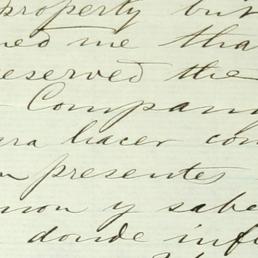 property but
me tha
reserved the
Compan
hacer con
presentes
y sabe
donde inf